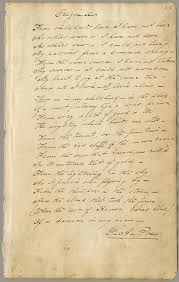 Original
From childhood's hour I have not been
As others were — I have not seen
As others saw — I could not bring
My passions from a common spring —
From the same source I have not taken
My sorrow — I could not awaken
My heart to joy at the same tone —
And all I lov'd — I lov'd alone —
Then — in my childhood — in the dawn
Of a most stormy life — was drawn
From ev'ry depth of good & ill
The mystery which binds me still —
From the torrent, or the fountain —
From the red cliff of the mountain —
From the sun that 'round me roll'd
In its autumn tint of gold —
From the lightning in the sky
As it pass'd me flying by —
From the thunder, & the storm —
And the cloud that took the form
(When the rest of Heaven was blue)
Of a demon in my view —
Poe